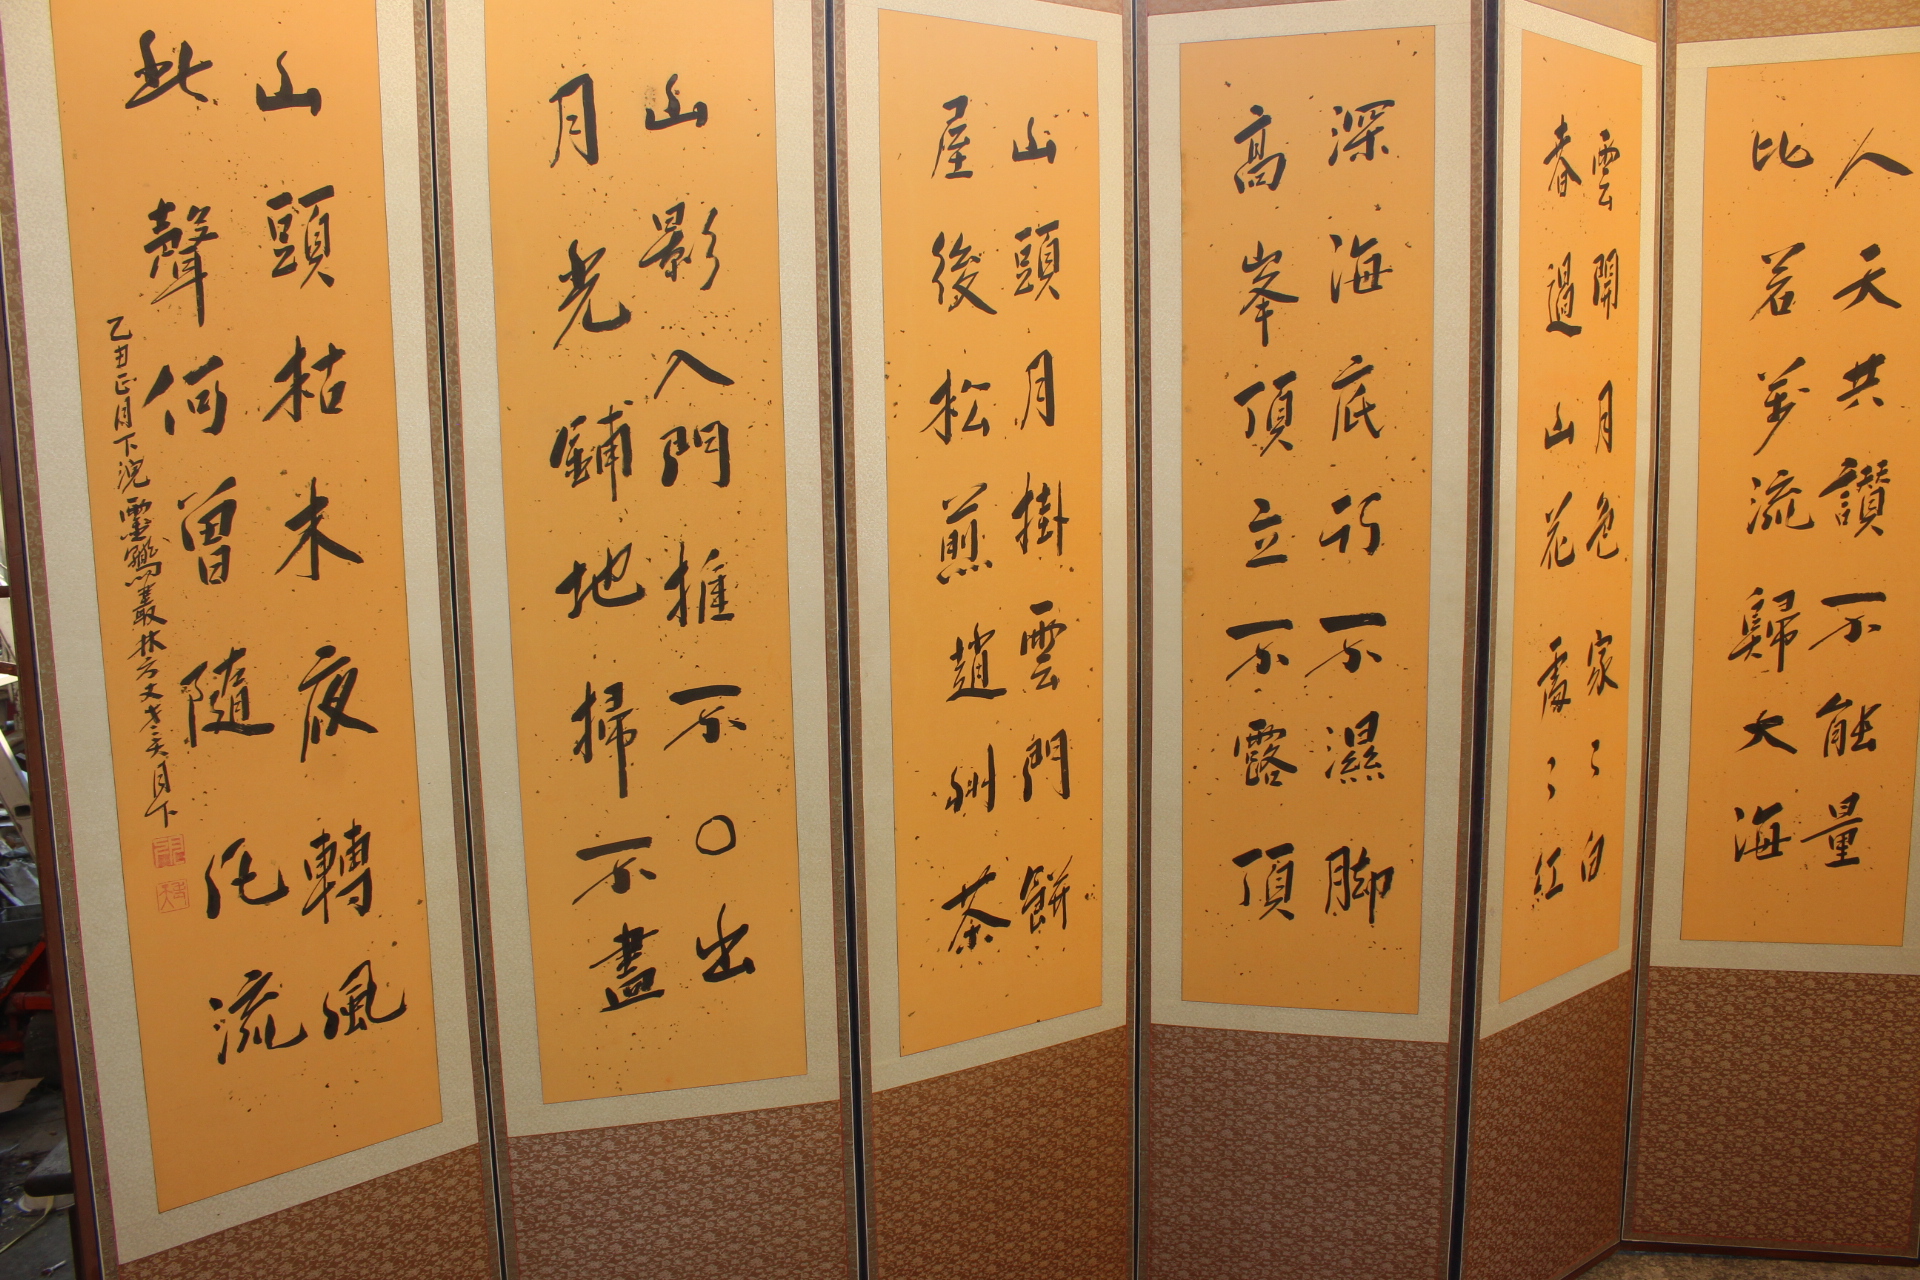 人天共讚不能量
比若萬流歸大海
雲開月色家〻白
春過山花處〻紅
深海底行不濕脚
高峯頂立不露頂
山頭月掛雲門餅
屋後松煎趙州茶
山影入門推不〇出
月光鋪地掃不盡
山頭枯木夜轉風
此聲何曾隨化流
乙丑正月下浣靈鷲叢林方丈老天月下